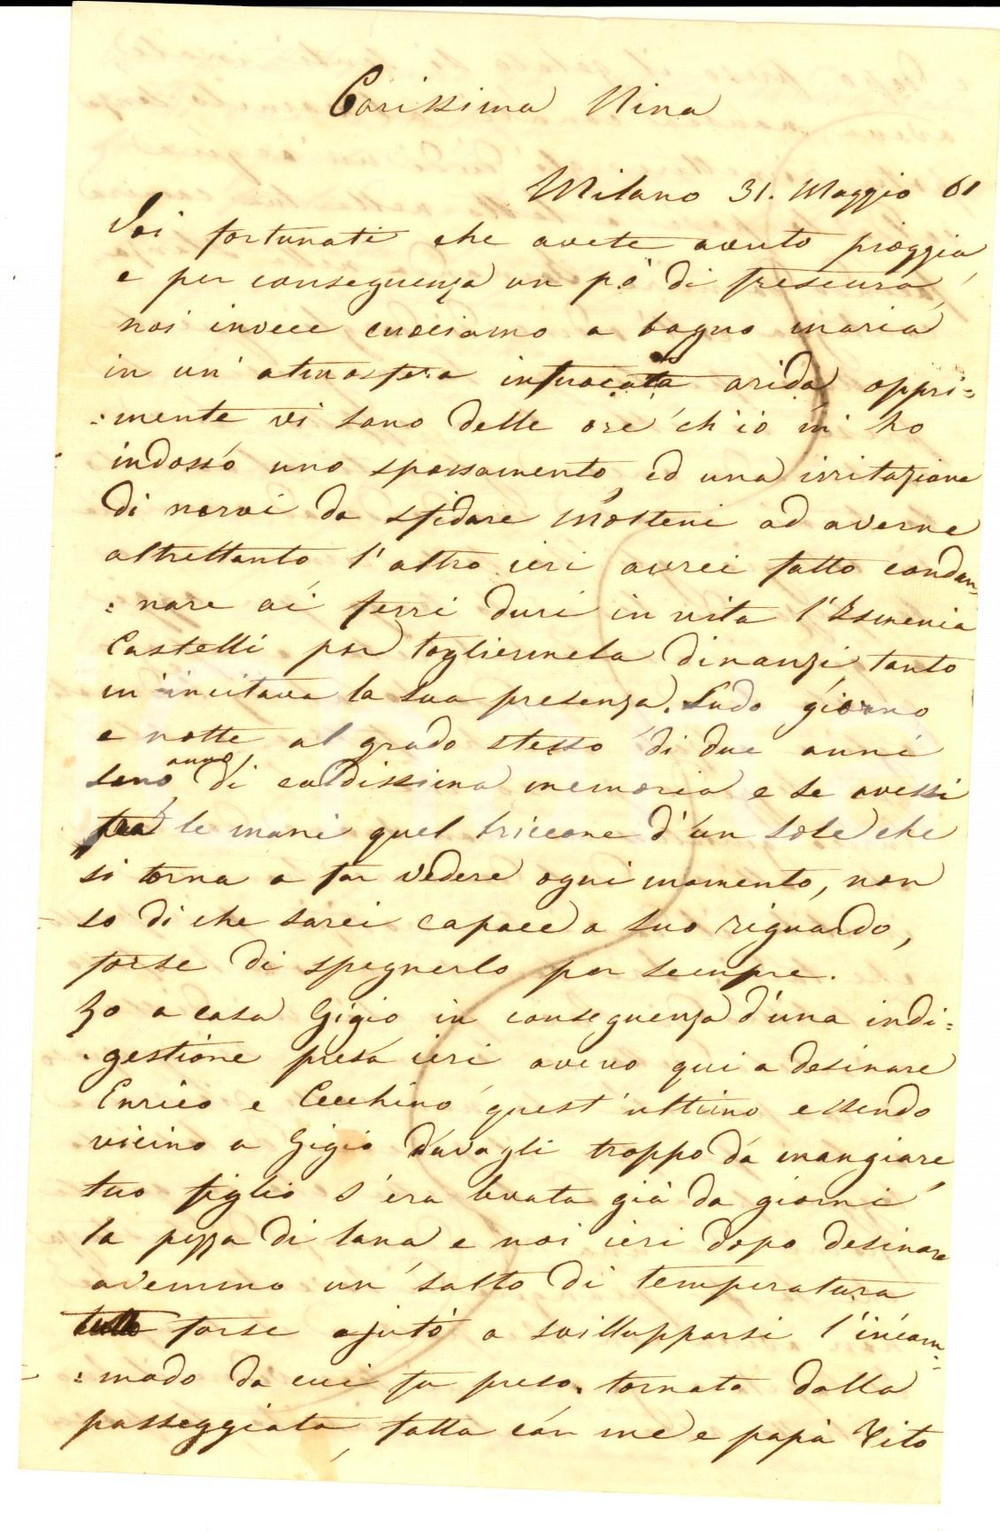 Carissima Nina
Milano 31. Maggio 61
Voi fortunati che avete avuto pioggia
e per conseguenza un pò di frescura,
noi invece cuociamo a bagno maria
in un' atmosfera infuocata arida oppri=
=mente vi sono delle ore ch'io m' ho
indosso uno spossamento, ed una irritazione
di nervi da sfidare Molteni ad averne
altrettanto l'altro ieri avrei fatto condan=
=nare ai ferri duri in vita l'Ismenia
Castelli per togliermela dinanzi, tanto
m'incitava la sua presenza. Sudo giorno
e notte al grado stesso di due anni
sono, anno di caldissima memoria e se avessi
fra le mani quel briccone d'un sole che
si torna a far vedere ogni momento, non
so di che sarei capace a suo riguardo,
forse di spegnerlo per sempre.
Ho a casa Gigio in conseguenza d'una indi=
=gestione presa ieri avevo qui a desinare
Enrico e Cecchino quest'ultimo essendo
vicino a Gigio davagli troppo da mangiare,
tuo figlio s'era levata già da giorni
la pezza di lana e noi ieri dopo desinare
avemmo un salto di temperatura
forse ajutò a svilupparsi l'incom=
=modo da cui fu preso. tornato dalla
passeggiata, fatta con me e papà Vito